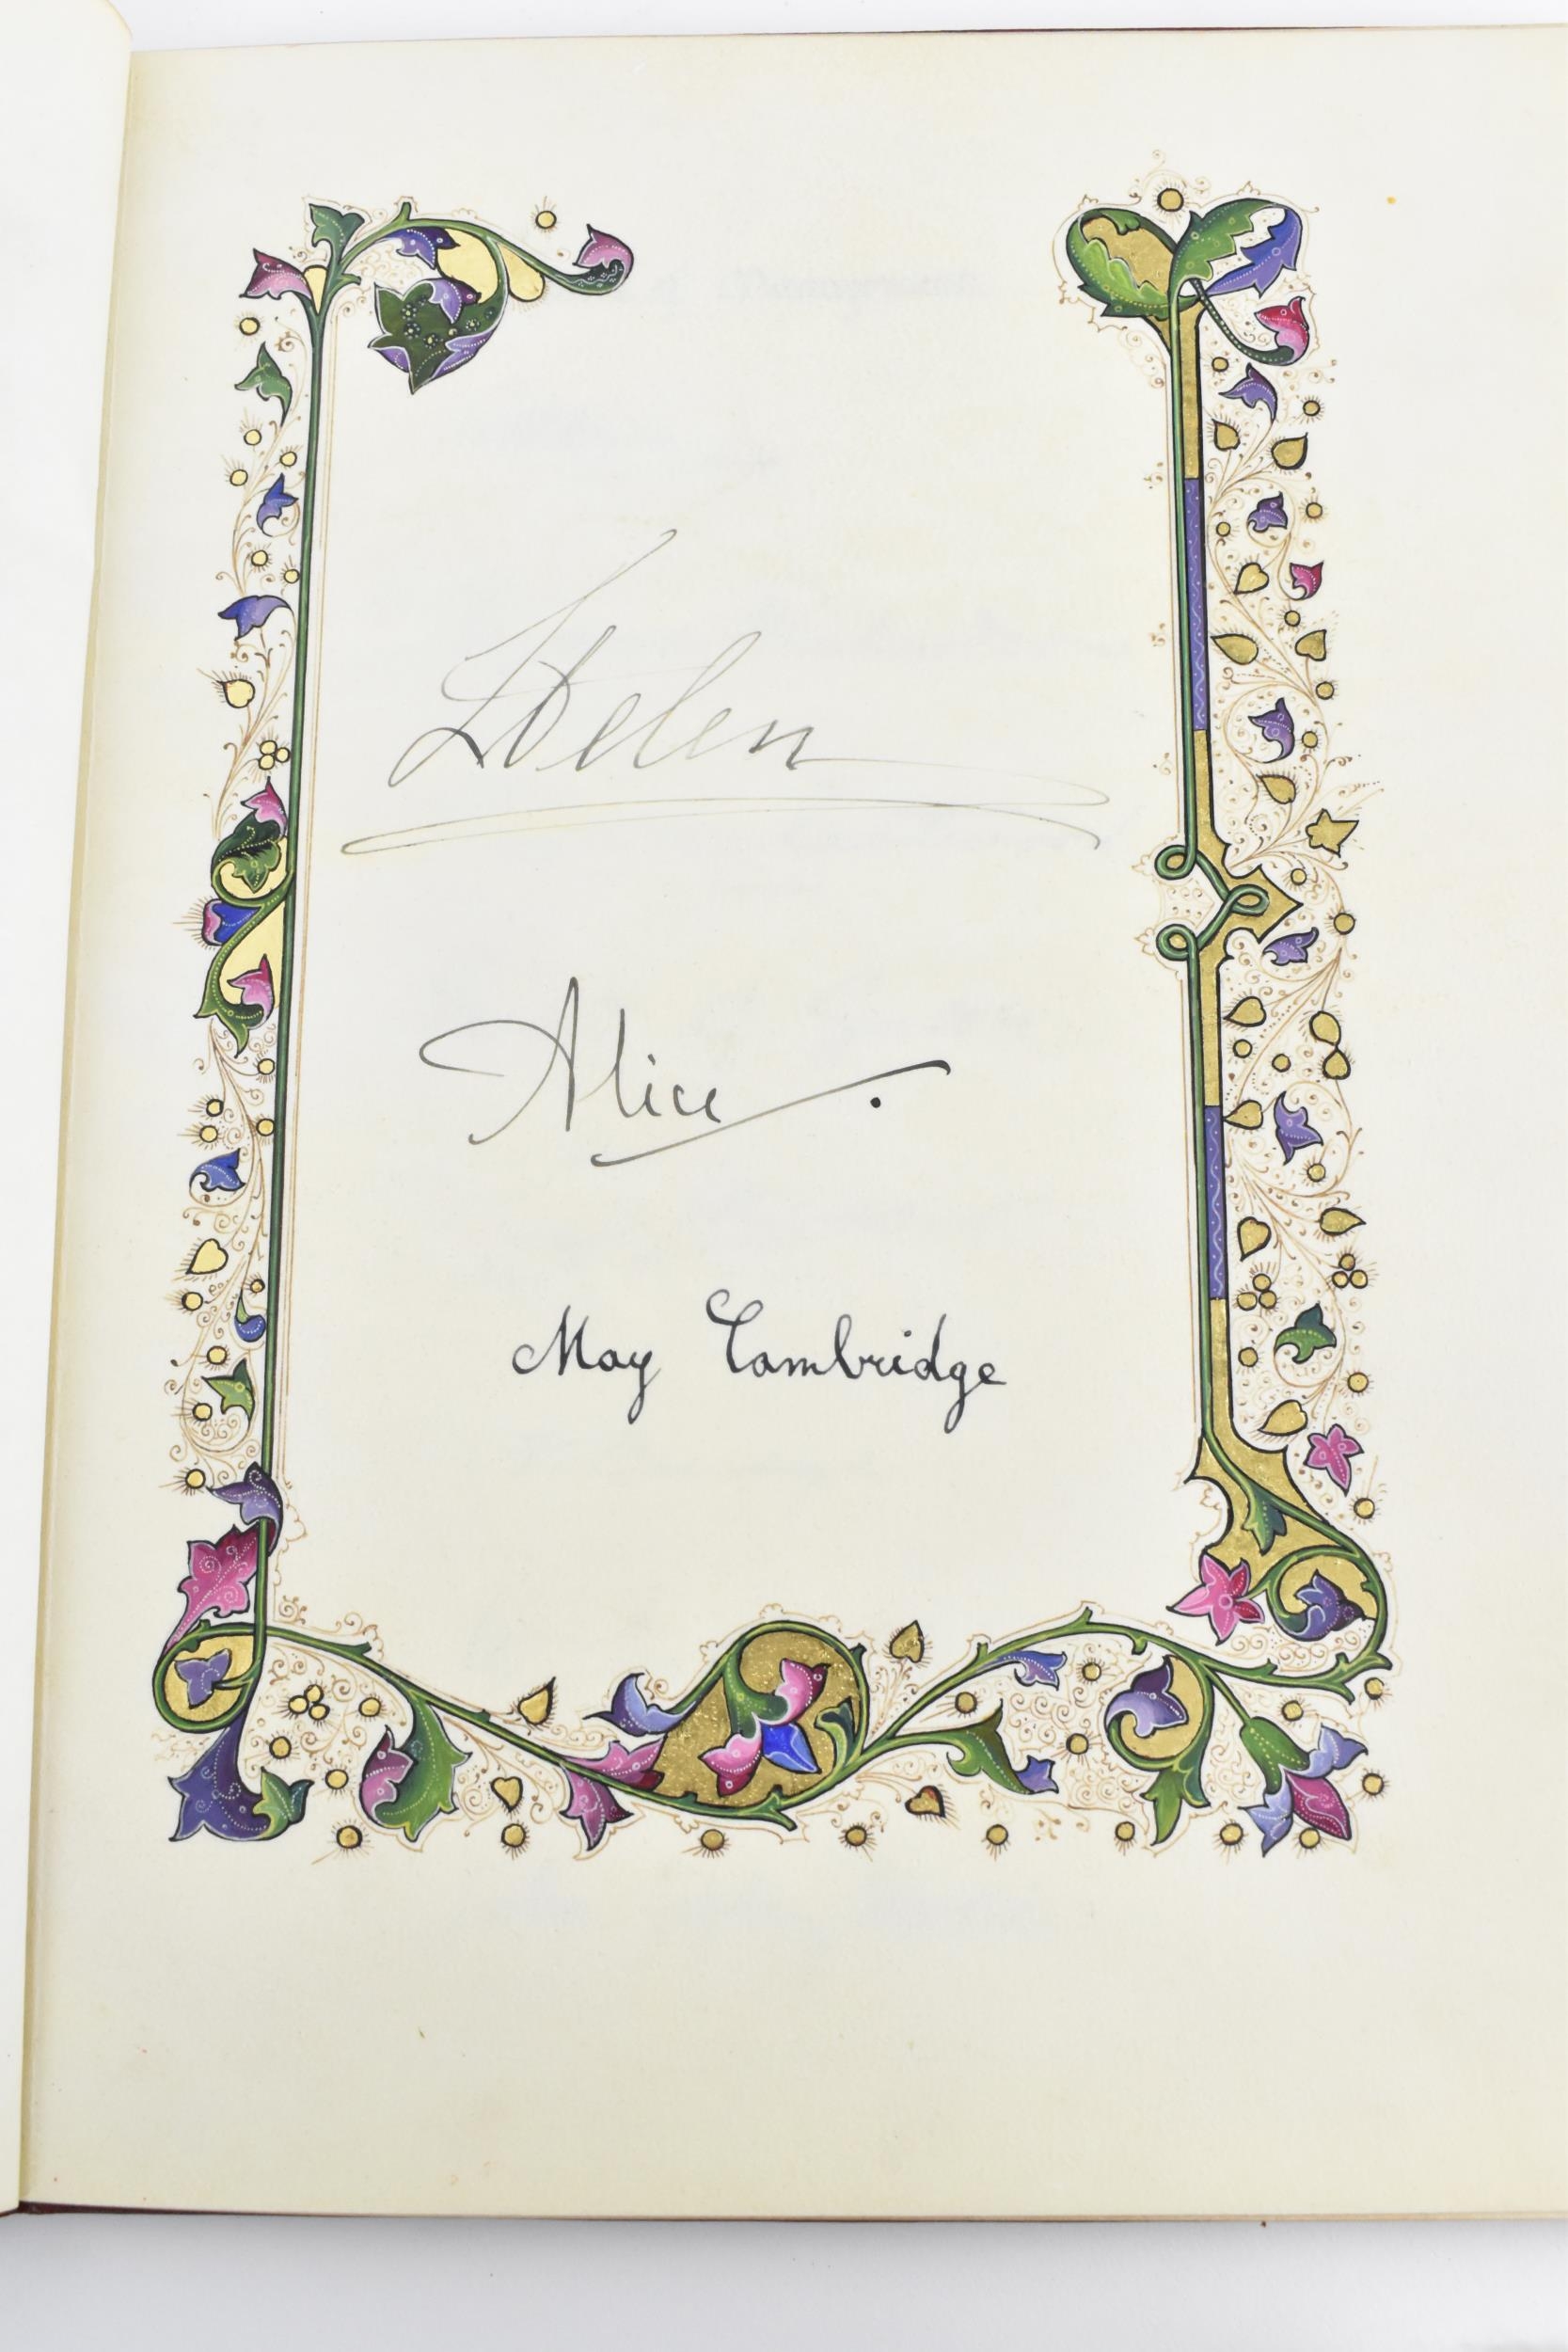 Helen
Alice.
May Cambridge